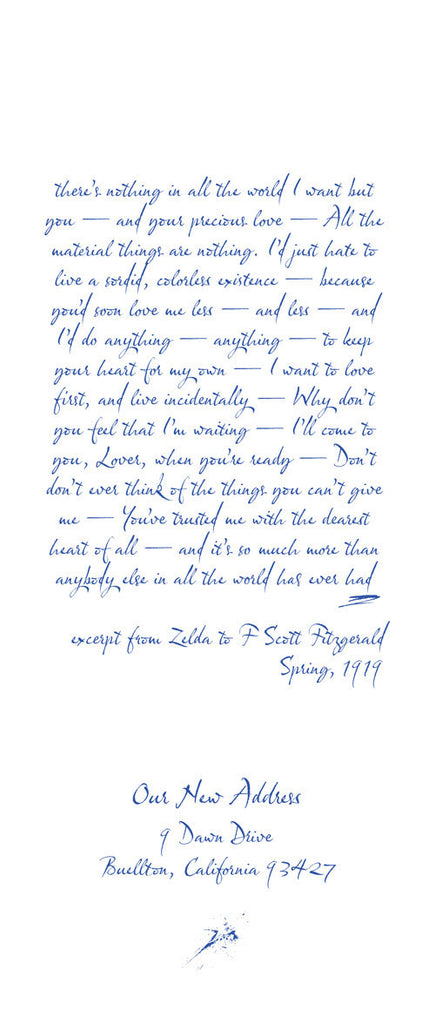 there's nothing in all the world I want but
you — and your precious love — All the
material things are nothing. I'd just hate to
live a sordid, colorless existence — because
you'd soon love me less — and less — and
I'd do anything — anything — to keep
your heart for my own — I want to love
first, and live incidentally — Why don't
you feel that I'm waiting — I'll come to
you, Lover, when you're ready — Don't
don't ever think of the things you can't give
me — You've trusted me with the dearest
heart of all — and it's so much more than
anybody else in all the world has ever had
excerpt from Zelda to F Scott Fitzgerald
Spring, 1919
Our New Address
9 Dawn Drive
Buellton, California 93427